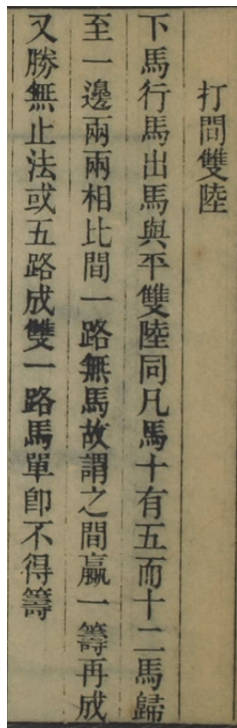 打間雙陸
下馬行馬出馬與平雙陸同凡馬十有五而十二馬歸
至一邊兩兩相比間一路無馬故謂之間贏一籌再成
又勝無止法或五路成雙一路馬單卽不得籌